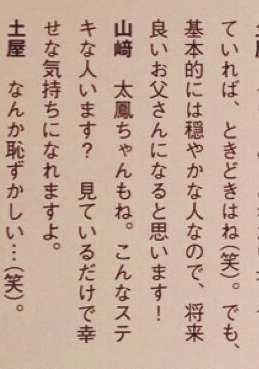 ていれば、ときどきはね(笑)。でも、
基本的には穏やかな人なので、将来
良いお父さんになると思います！
山﨑　太鳳ちゃんもね。こんなステ
キな人います？　見ているだけで幸
せな気持ちになれますよ。
土屋　なんか恥ずかしい…(笑)。